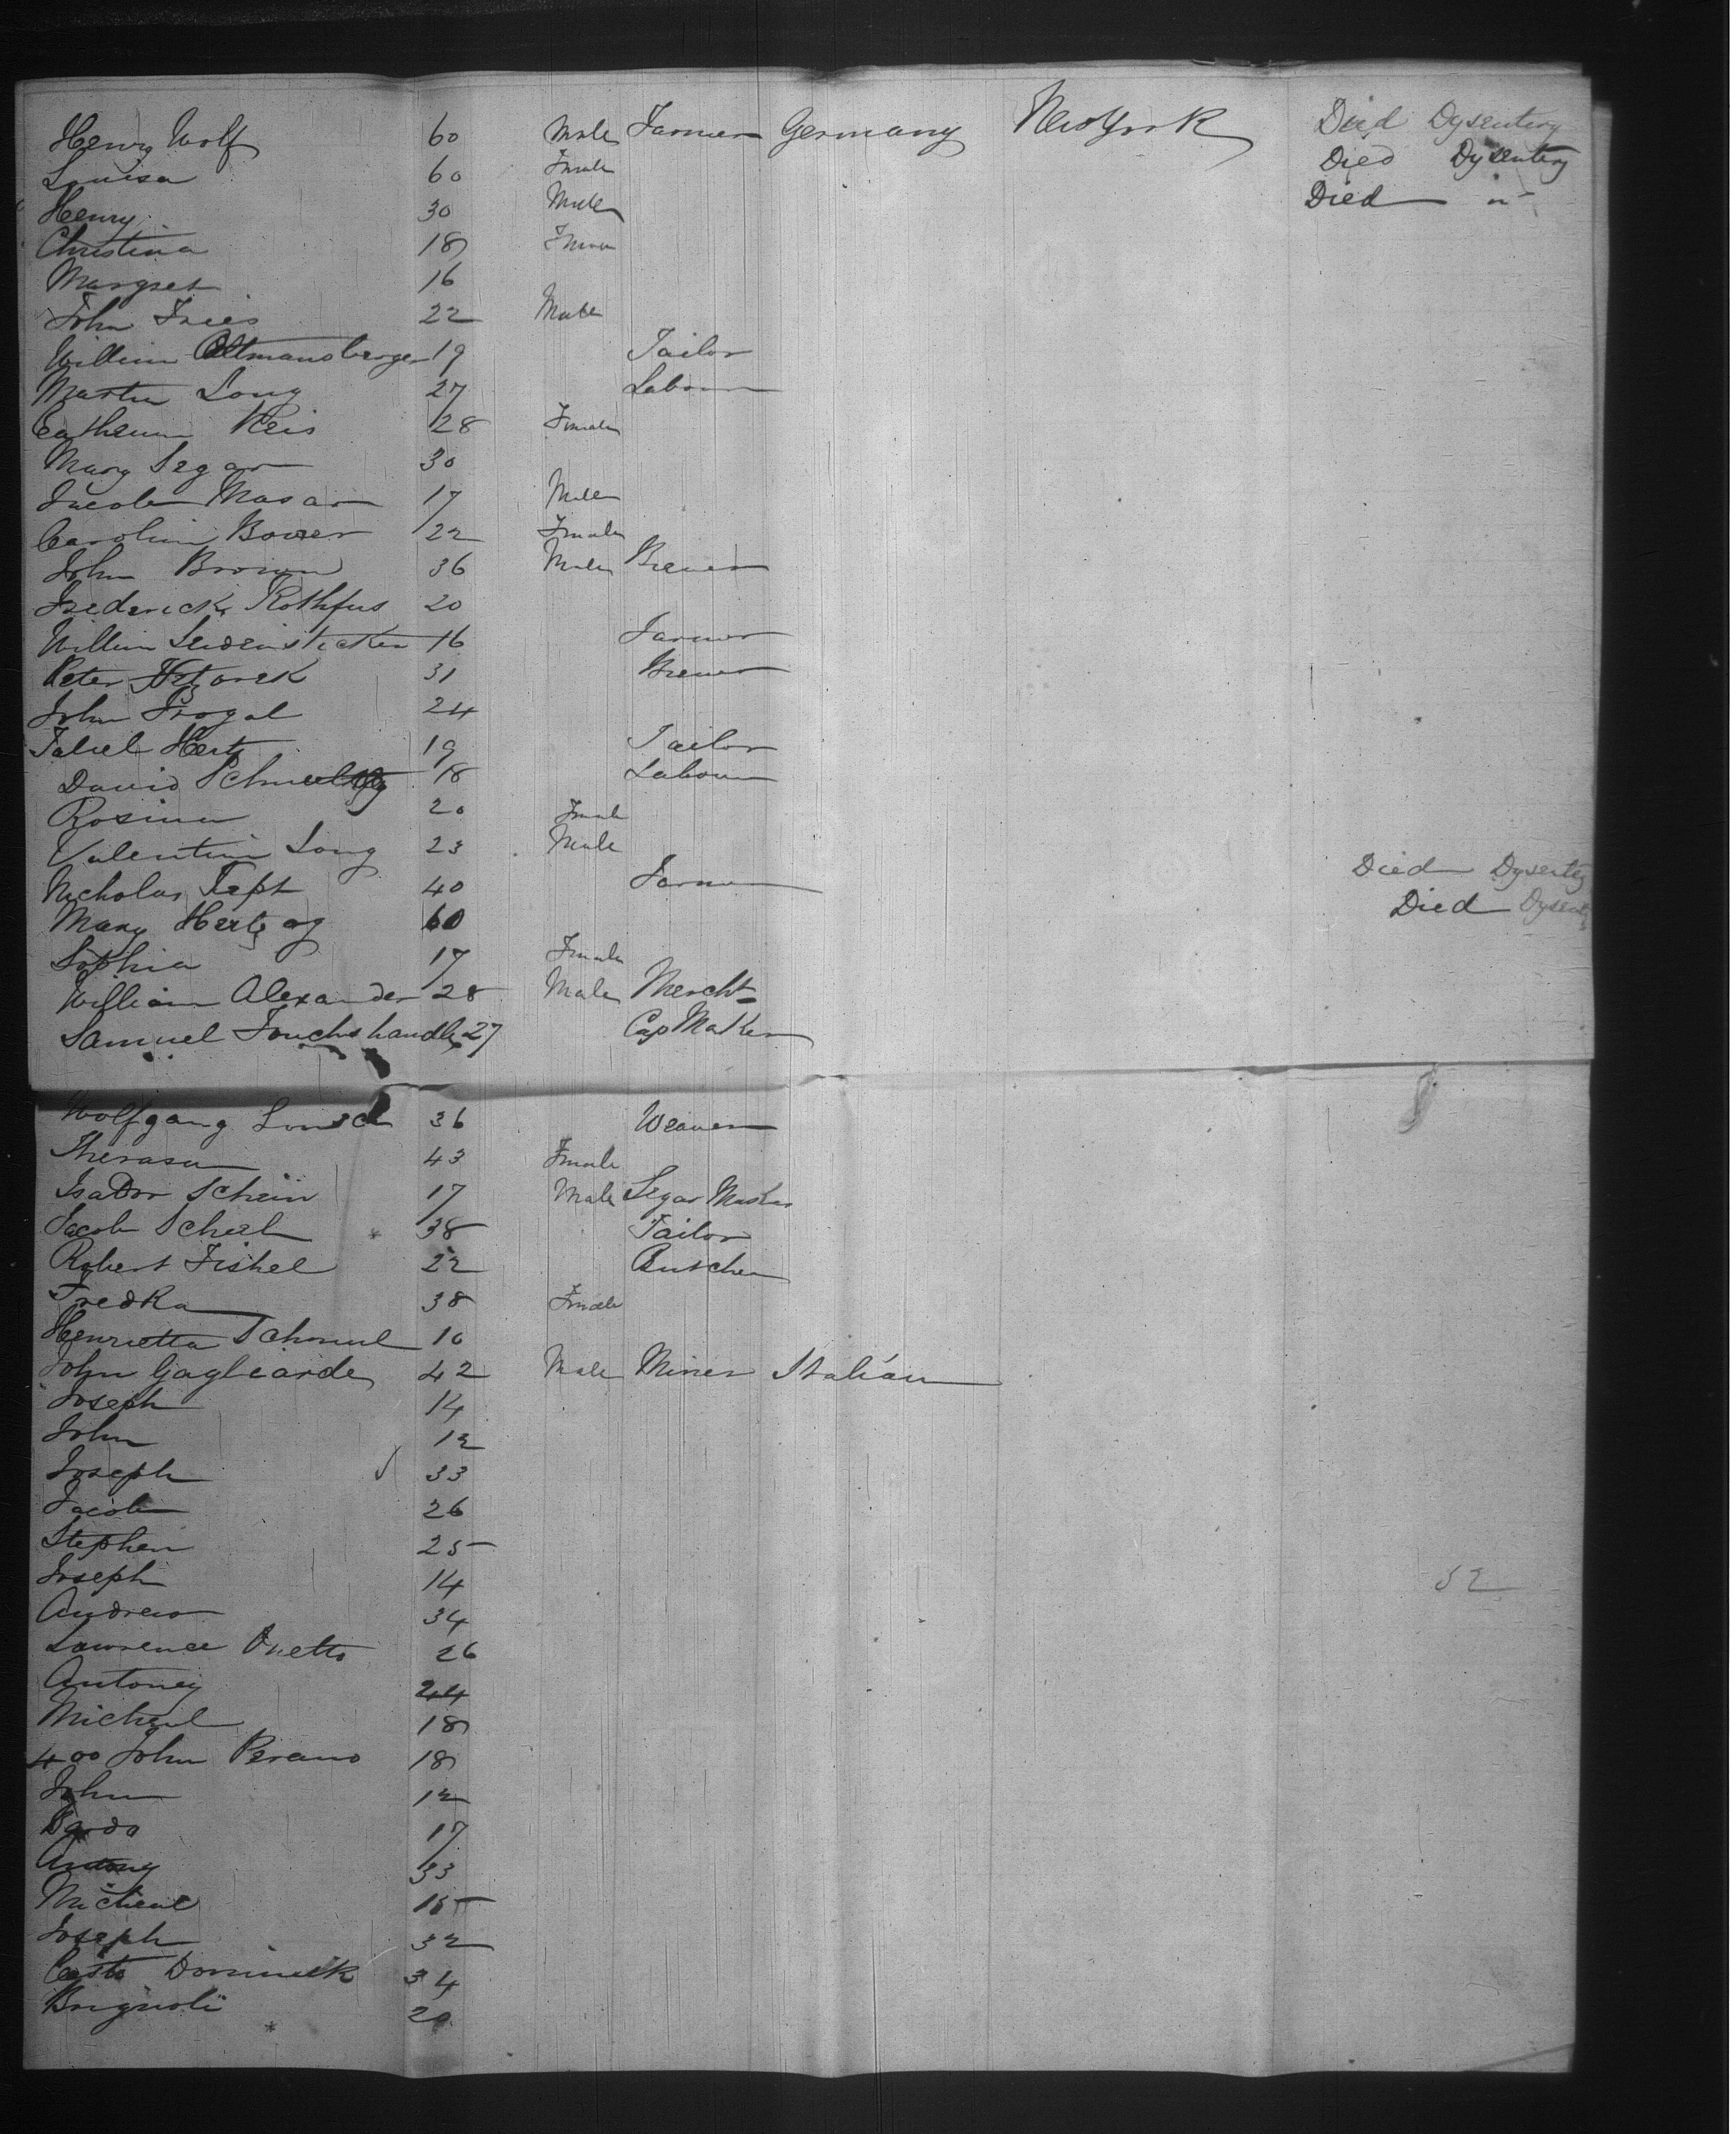 Henry Wolf 60 Male Farmer Germany New York Died Dysentery
Louisa 60 Female Died Dysentery
Henry 30 Male Died "
Christina 18
Margret 16
John Fries 22 Male
William Ottmansberger 19 Tailor
Martin Long 27 Labour
Catherine Reis 28 Female
Mary Segar 30
Jacob Masar 17 Male
Carolin Bower 22 Female
John Brown 36 Male Brewer
Frederick Rothfus 20
William Seidensticker 16 Farmer
Peter 31 Brewer
John Progal 24
Hertz 19 Tailor
David 18 Labour
Rosina 20 Female
Valentin Long 23 Male
Nicholas Tept 40 Farmer Died Dysentery
Mary Hertzog 60 Died
Sophia 17 Female
William Alexander 28 Male Mercht
Samuel Fouchshandler 27 Cap Maker
Wolfgang 36 Weaver
Therasa 43 Female
Isador Schein 17 Male Segar Maker
Jacob Scherl 38 Tailor
Robert Fishel 22 Butcher
Fredka 38 Female
Henrietta 10
John Gagliarde 42 Male Miner Italian
Joseph 14
John 12
Joseph 33
Jacob 26
Stephen 25
Joseph 14 52
Andrew 34
Lawrence Ouetto 26
Antoney 24
Michael 18
400 John Perano 18
John 12
17
Antony 33
Micheal 15
Joseph 32
Costa Dominick 34
Brignoli 20